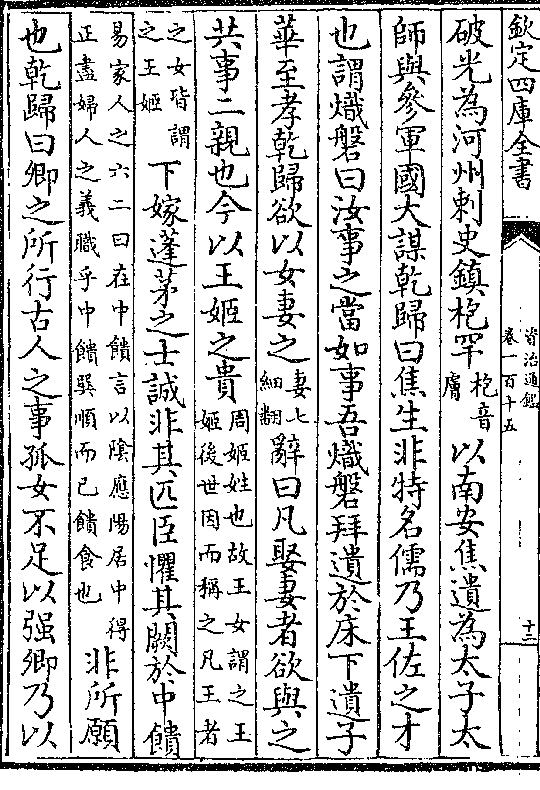 欽定四庫全書
資治通鑑
卷一百十五
十二
破光為河州刺史鎮枹罕枹音膚以南安焦遺為太子太
師與參軍國大謀乾歸曰焦生非特名儒乃王佐之才
也謂熾磐曰汝事之當如事吾熾磐拜遺於床下遺子
華至孝乾歸欲以女妻之妻七細翻辭曰凡娶妻者欲與之
共事二親也今以王姬之貴周姬姓也故王女謂之王姬後世因而稱之凡王者
之女皆謂之王姬下嫁蓬茅之士誠非其匹臣懼其闕於中饋
易家人之六二曰在中饋言以陰應陽居中得正盡婦人之義職乎中饋巽順而已饋食也非所願
也乾歸曰卿之所行古人之事孤女不足以强卿乃以